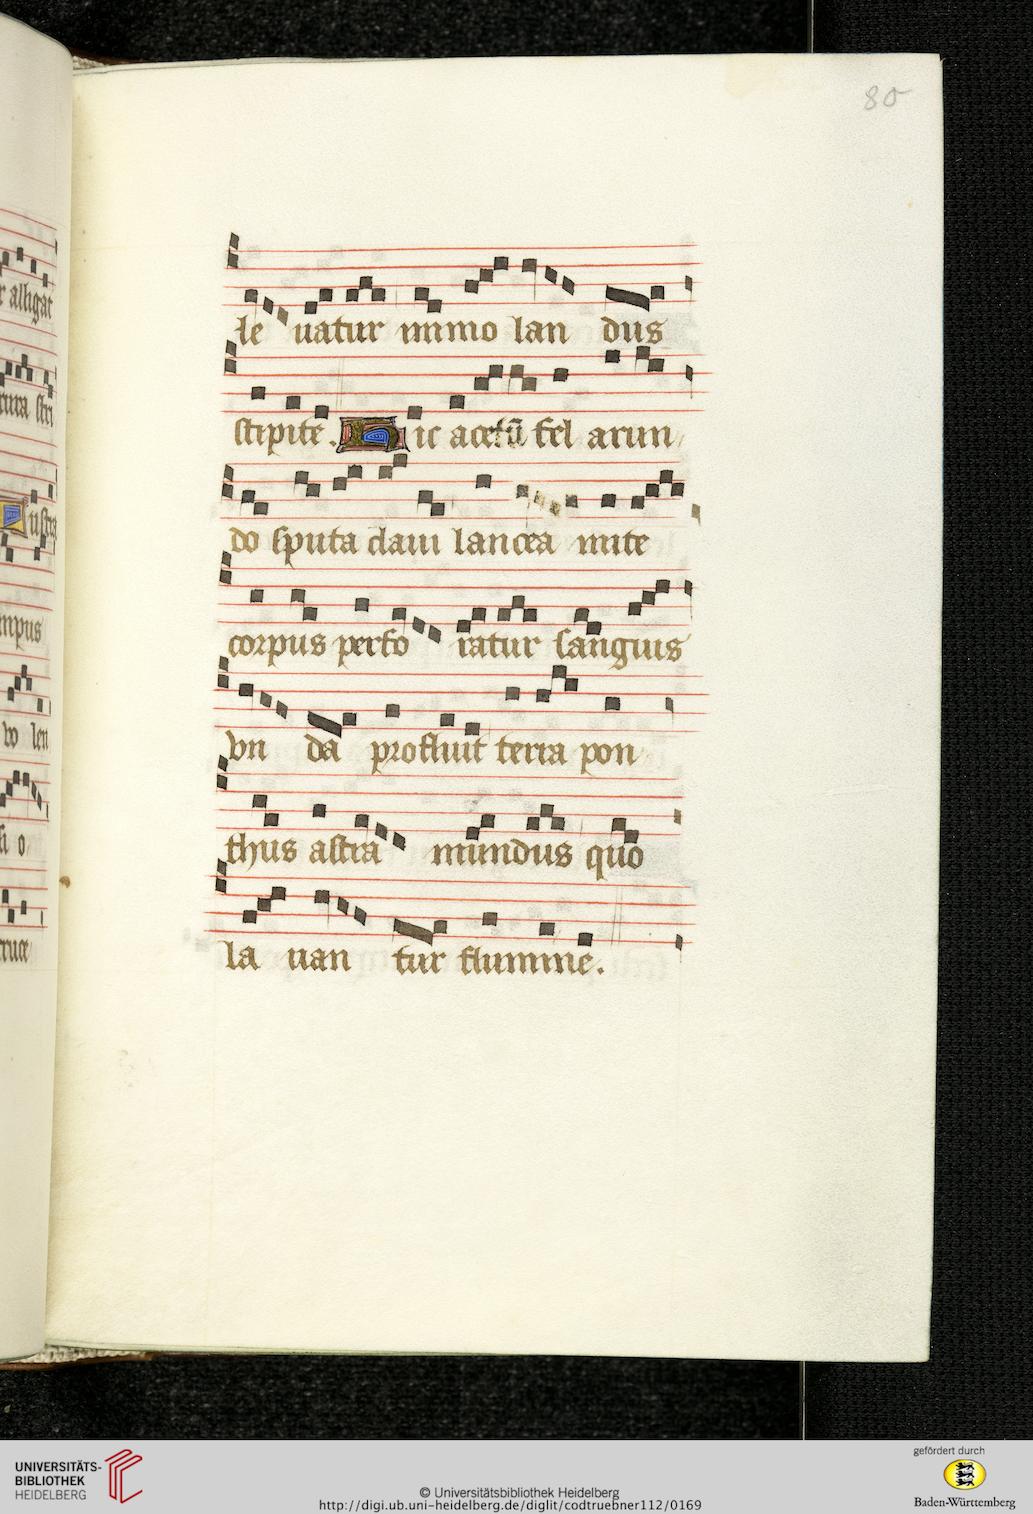 80
le uatur immo lan dus
stipite. Hic acetū fel arun
do sputa claui lancea mite
corpus perfo ratur sanguis
vn da profluit terra pon
thus astra mundus quo
la uan tur flumine.
r alligat
rura stri
usta
mpus
vo len
si o
cruce
UNIVERSITÄTS-
BIBLIOTHEK
HEIDELBERG
© Universitätsbibliothek Heidelberg
http://digi.ub.uni-heidelberg.de/diglit/codtruebner112/0169
gefördert durch
Baden-Württemberg